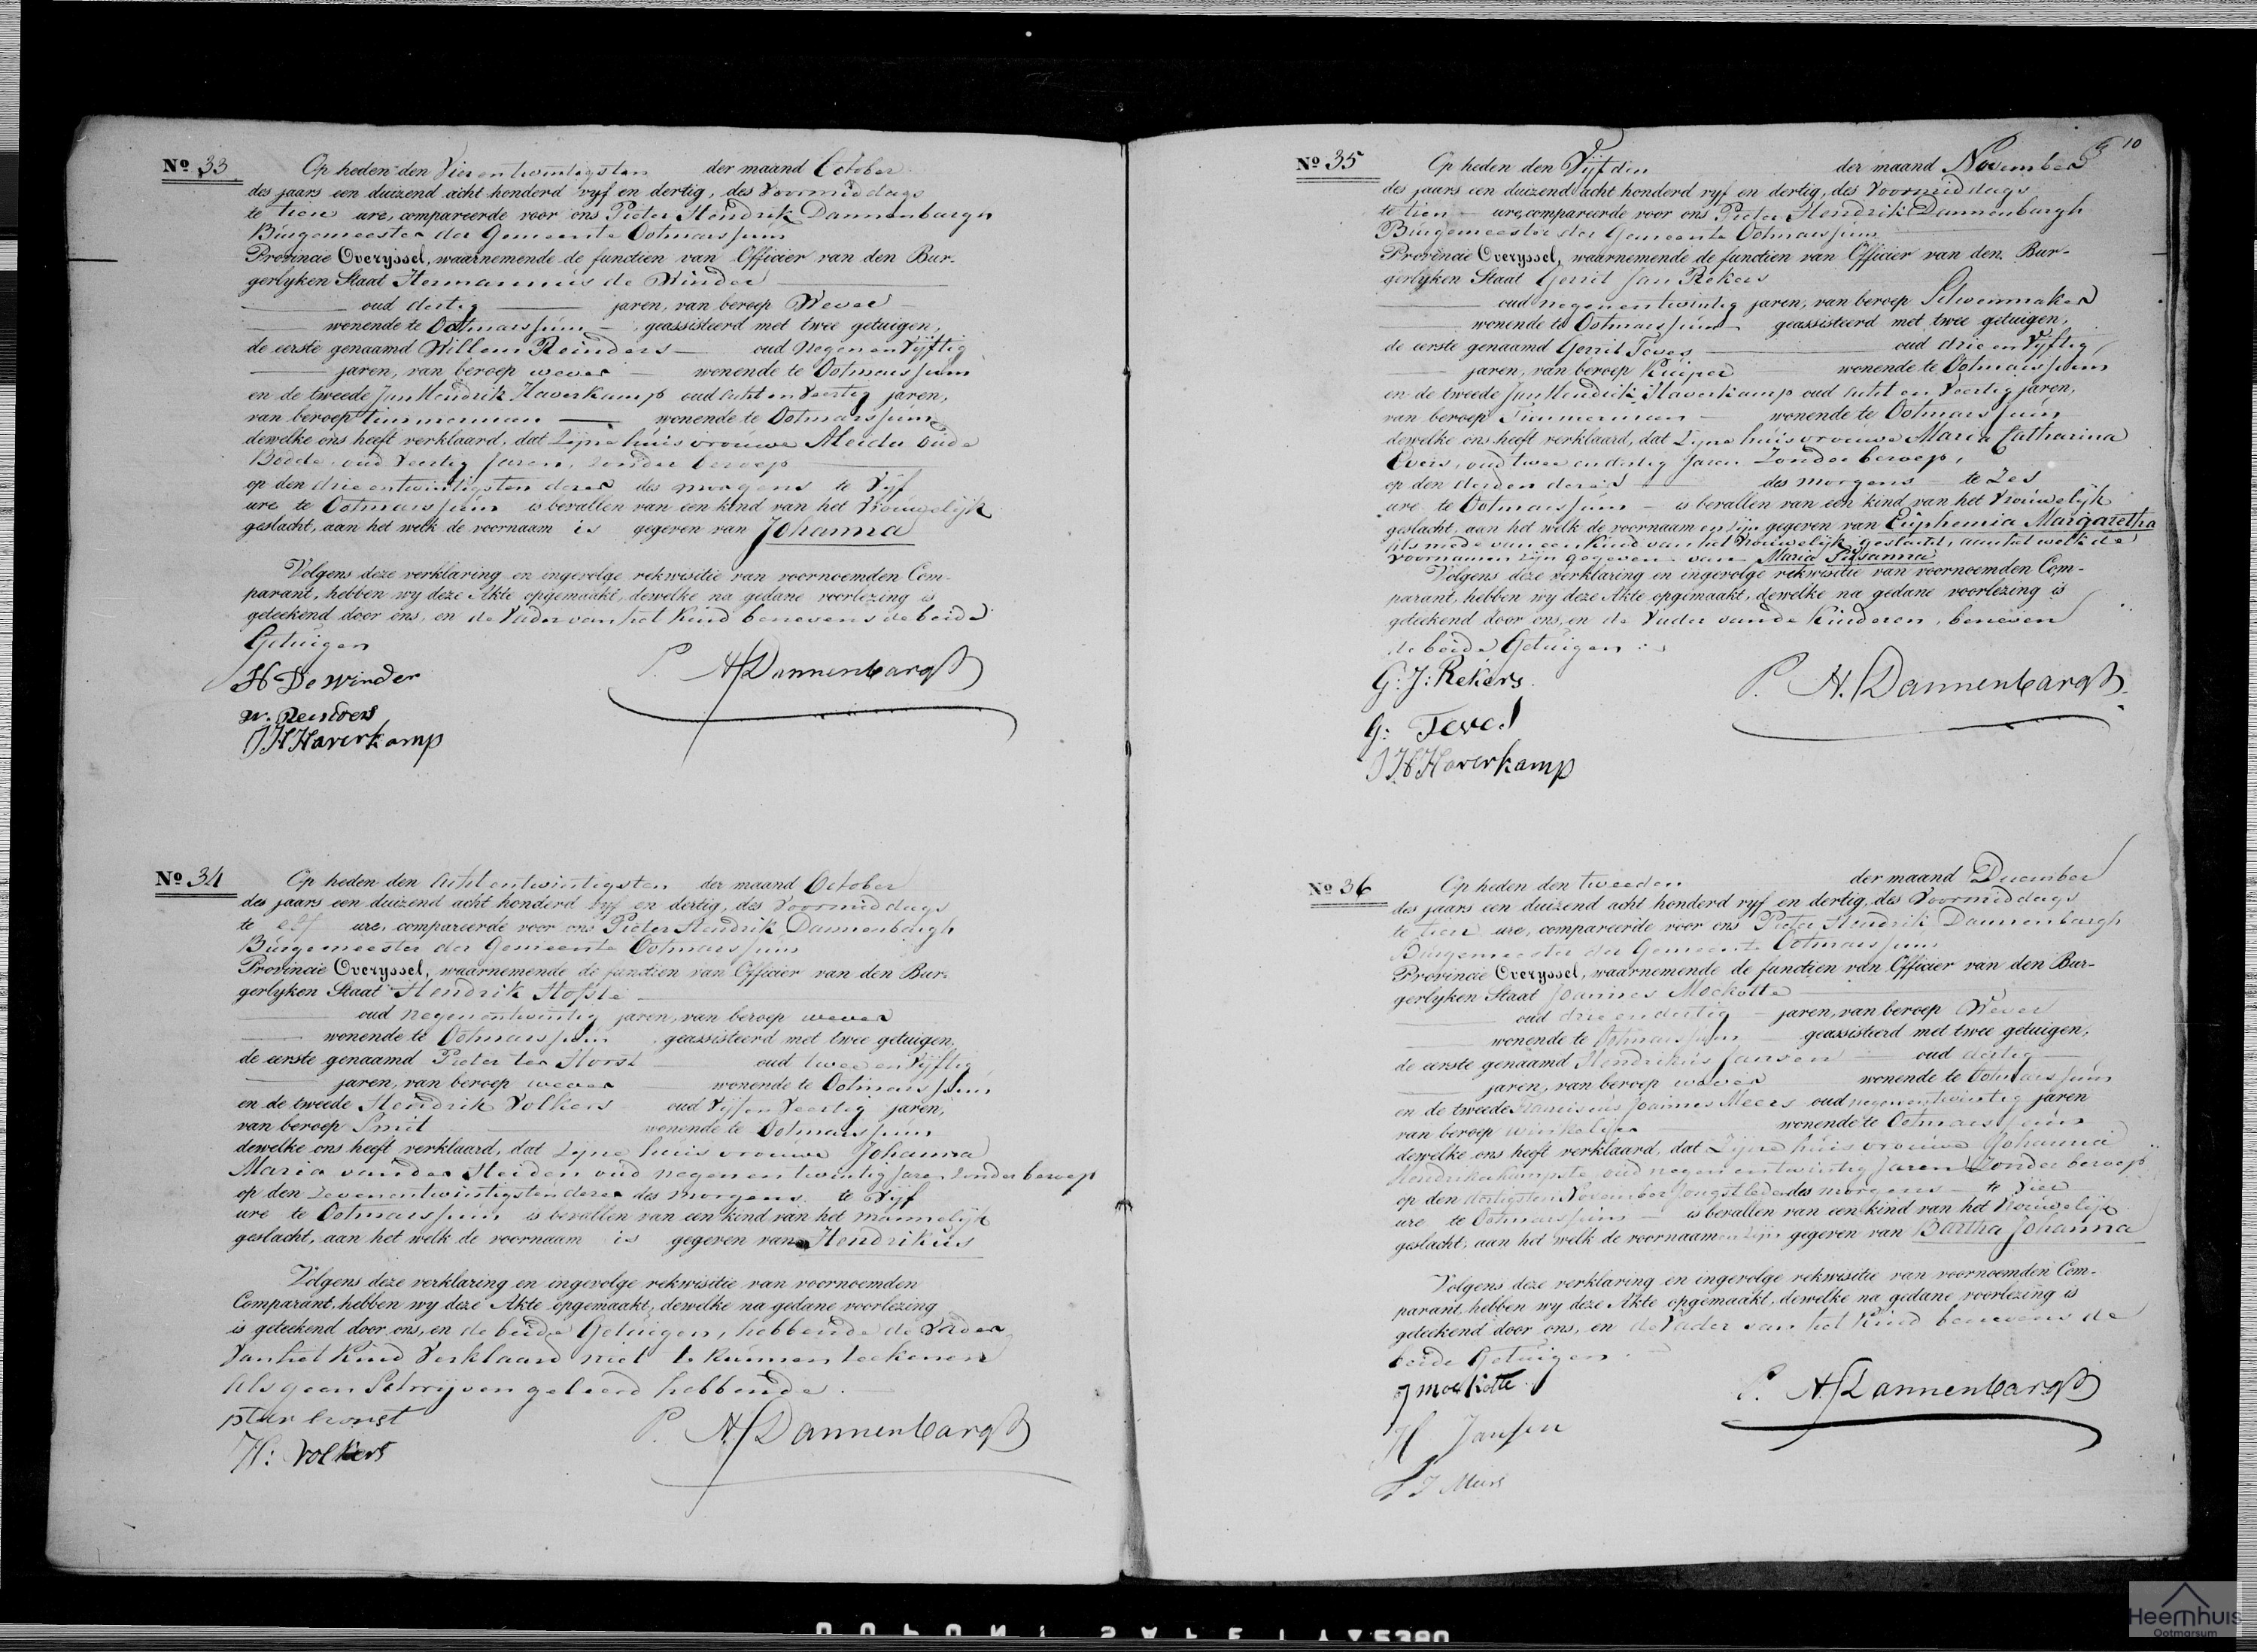 Nº 33 Op heden den Vierentwintigsten der maand October
des jaars een duizend acht honderd vyf en dertig, des Voormiddags
te tien ure, compareerde voor ons Pieter Hendrik Dannenbargh
Burgemeester der Gemeente Ootmarssum
Provincie Overyssel, waarnemende de functien van Officier van den Bur-
gerlyken Staat Hermannus de Winder
oud dertig jaren, van beroep Wever
wonende te Ootmarssum geassisteerd met twee getuigen,
de eerste genaamd Willem Reinders oud Negen en Vyftig
jaren, van beroep wever wonende te Ootmarssum
en de tweede Jan Hendrik Haverkamp oud acht en Veertig jaren,
van beroep timmerman wonende te Ootmarssum
dewelke ons heeft verklaard, dat Zyne huisvrouwe Aleida Oude
Bodde, oud Veertig Jaren, zonder beroep
op den drie entwintigsten dezer des morgens te Vyf
ure te Ootmarssum is bevallen van een kind van het Vrouwelijk
geslacht, aan het welk de voornaam is gegeven van Johanna
Volgens deze verklaring en ingevolge rekwisitie van voornoemden Com-
parant, hebben wy deze Akte opgemaakt, dewelke na gedane voorlezing is
geteekend door ons, en de Vader van het Kind benevens de beide
Getuigen
H De Winder P. H. Dannenbargh
W. Reinders
J H Haverkamp
Nº 34 Op heden den Acht entwintigsten der maand October
des jaars een duizend acht honderd vyf en dertig, des Voormiddags
te elf ure, compareerde voor ons Pieter Hendrik Dannenbargh
Burgemeester der Gemeente Ootmarssum
Provincie Overyssel, waarnemende de functien van Officier van den Bur-
gerlyken Staat Hendrik Hofste
oud negenentwintig jaren, van beroep wever
wonende te Ootmarssum geassisteerd met twee getuigen,
de eerste genaamd Pieter ter Horst oud twee en Vyftig
jaren, van beroep wever wonende te Ootmarssum
en de tweede Hendrik Volkers oud Vyf en Veertig jaren,
van beroep Smit wonende te Ootmarssum
dewelke ons heeft verklaard, dat Zyne huisvrouwe Johanna
Maria van der Heiden oud negen en twintig Jaren zonder beroep
op den Zevenentwintigsten dezer des morgens te Vyf
ure te Ootmarssum is bevallen van een kind van het mannelijk
geslacht, aan het welk de voornaam is gegeven van Hendrikus
Volgens deze verklaring en ingevolge rekwisitie van voornoemden
Comparant, hebben wy deze Akte opgemaakt, dewelke na gedane voorlezing
is geteekend door ons, en de beide Getuigen, hebbende de Vader
van het Kind Verklaard niet te kunnen teekenen
Als geen Schrijven geleerd hebbende.
P. H. Dannenbargh
H: Volkers
10
Nº 35 Op heden den Vijfden der maand November
des jaars een duizend acht honderd vyf en dertig, des Voormiddags
te tien ure, compareerde voor ons Pieter Hendrik Dannenbargh
Burgemeester der Gemeente Ootmarssum
Provincie Overyssel, waarnemende de functien van Officier van den Bur-
gerlyken Staat Gerrit Jan Rekers
oud negenentwintig jaren, van beroep Schoenmaker
wonende te Ootmarssum geassisteerd met twee getuigen,
de eerste genaamd Gerrit Teves oud drie en Vyftig
jaren, van beroep Kuiper wonende te Ootmarssum
en de tweede Jan Hendrik Haverkamp oud acht en Veertig jaren,
van beroep Timmerman wonende te Ootmarssum
dewelke ons heeft verklaard, dat Zyne huisvrouwe Maria Catharina
Evers, oud twee en dertig Jaren Zonder beroep,
op den derden dezer des morgens te Zes
ure te Ootmarssum is bevallen van een kind van het Vrouwelijk
geslacht, aan het welk de voornaamen zijn gegeven van Euphemia Margaretha
Als mede van een Kind van het Vrouwelijk geslacht, aan het welk de
voornamen zijn gegeven van Maria Susanna
Volgens deze verklaring en ingevolge rekwisitie van voornoemden Com-
parant, hebben wy deze Akte opgemaakt, dewelke na gedane voorlezing is
geteekend door ons, en de Vader van de Kinderen, beneven
de beide Getuigen.
G: J: Rekers. P. H. Dannenbargh
G: Teves
J H Haverkamp
Nº 36 Op heden den tweeden der maand December
des jaars een duizend acht honderd vyf en dertig, des Voormiddags
te tien ure, compareerde voor ons Pieter Hendrik Dannenbargh
Burgemeester der Gemeente Ootmarssum
Provincie Overyssel, waarnemende de functien van Officier van den Bur-
gerlyken Staat Joannes Mockotte
oud drie en dertig jaren, van beroep Wever
wonende te Ootmarssum geassisteerd met twee getuigen,
de eerste genaamd Hendrikus Jansen oud dertig
jaren, van beroep wever wonende te Ootmarssum
en de tweede Franciscus Joannes Meers oud negenentwintig jaren
van beroep winkelier wonende te Ootmarssum
dewelke ons heeft verklaard, dat Zyne huisvrouwe Johanna
oud negen en twintig Jaren Zonder beroep
op den dertigsten November Jongstleden des morgens te Vier
ure te Ootmarssum is bevallen van een kind van het Vrouwelijk
geslacht, aan het welk de voornaamen zijn gegeven van Bartha Johanna
Volgens deze verklaring en ingevolge rekwisitie van voornoemden Com-
parant, hebben wy deze Akte opgemaakt, dewelke na gedane voorlezing is
geteekend door ons, en de Vader van het Kind benevens de
beide Getuigen.
J Mockotte P. H. Dannenbargh
H Jansen
F J Meers
Heemhuis
Ootmarsum